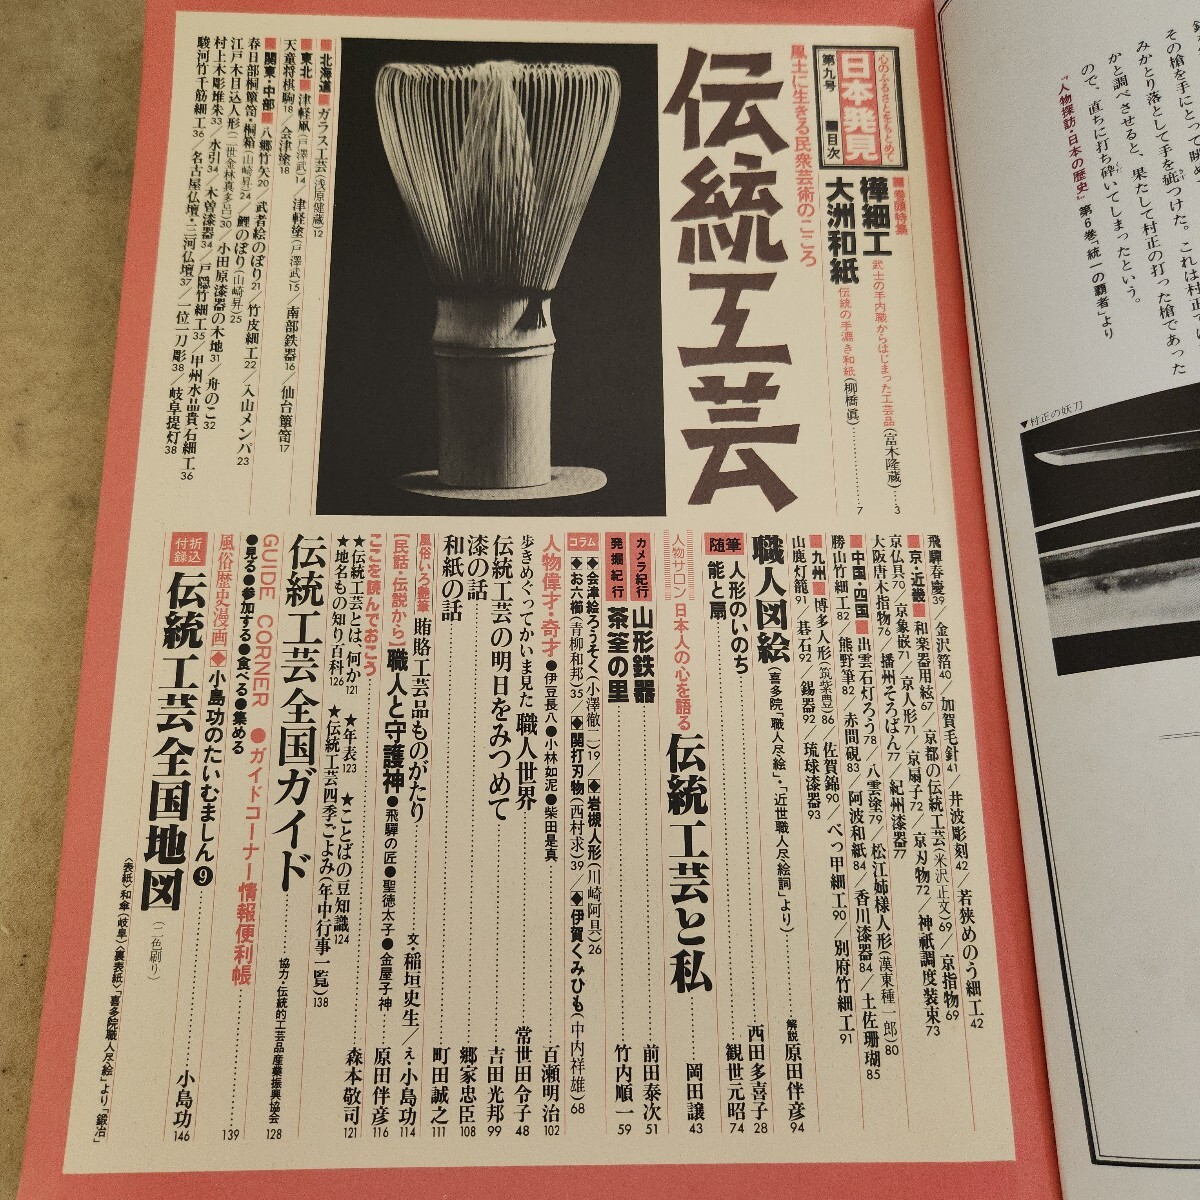 心のふるさとをもとめて
日本発見
第九号 ■目次
伝統工芸
風土に生きる民衆芸術のこころ
■巻頭特集
樺細工 武士の手内職からはじまった工芸品(富木隆蔵)……3
大洲和紙 伝統の手漉き和紙(柳橋眞)……7
■北海道■ガラス工芸(浅原健蔵)12
■東北■津軽凧(戸澤武)14/津軽塗(戸澤武)15/南部鉄器16/仙台簞笥17
天童将棋駒18/会津塗18
■関東・中部■八郷竹矢20/武者絵のぼり21/竹皮細工22/入山メンパ23
春日部桐簞笥・桐箱(山崎昇)24/鯉のぼり(山崎昇)25
江戸木目込人形(二世金林真多呂)30/小田原漆器の木地31/舟のこ32
村上木彫堆朱33/水引34/木曽漆器34/戸隠竹細工35/甲州水晶貴石細工36
駿河竹千筋細工36/名古屋仏壇・三河仏壇37/一位一刀彫38/岐阜提灯38
飛驒春慶39/金沢箔40/加賀毛針41/井波彫刻42/若狭めのう細工42
■京・近畿■和楽器用絃67/京都の伝統工芸(米沢正文)69/京指物69
京仏具70/京象嵌71/京人形71/京扇子72/京刃物72/神祇調度装束73
大阪唐木指物76/播州そろばん77/紀州漆器77
■中国・四国■出雲石灯ろう78/八雲塗79/松江姉様人形(漢東種一郎)80
勝山竹細工82/熊野筆82/赤間硯83/阿波和紙84/香川漆器84/土佐珊瑚85
■九州■博多人形(筑紫豊)86/佐賀錦90/べっ甲細工90/別府竹細工91
山鹿灯籠91/碁石92/錫器92/琉球漆器93
職人図絵(喜多院「職人尽絵」・「近世職人尽絵詞」より)……解説 原田伴彦 94
随筆 人形のいのち……西田多喜子 28
能と扇……観世元昭 74
人物サロン 日本人の心を語る 伝統工芸と私……岡田譲 43
カメラ紀行 山形鉄器……前田泰次 51
発掘紀行 茶筌の里……竹内順一 59
コラム ◆会津絵ろうそく(小澤徹二)19/◆岩槻人形(川崎阿具)26
◆お六櫛(青柳和邦)35/◆関打刃物(西村求)39/◆伊賀くみひも(中内祥雄)68
人物偉才・奇才●伊豆長八●小林如泥●柴田是真……百瀬明治 102
歩きめぐってかいま見た 職人世界……常世田令子 48
伝統工芸の明日をみつめて……吉田光邦 99
漆の話……郷家忠臣 108
和紙の話……町田誠之 111
風俗いろ艶筆 賄賂工芸品ものがたり……文・稲垣史生/え・小島功 114
【民話・伝説から】職人と守護神●飛驒の匠●聖徳太子●金屋子神……原田伴彦 116
ここを読んでおこう……森本敬司 121
★伝統工芸とは、何か121 ★年表123 ★ことばの豆知識124
★地名もの知り百科126 ★伝統工芸四季ごよみ(年中行事一覧)138
伝統工芸全国ガイド……協力・伝統的工芸品産業振興協会 128
GUIDE CORNER ●ガイドコーナー情報便利帳
●見る●参加する●食べる●集める……139
風俗歴史漫画◆小島功のたいむましん❾……小島功 146
折込付録 伝統工芸全国地図(二色刷り)
〈表紙〉和傘(岐阜)〈裏表紙〉「喜多院職人尽絵」より「鍛冶」
その槍を手にとって眺め
みかとり落として手を疵つけた。これは村正で
かと調べさせると、果たして村正の打った槍であった
ので、直ちに打ち砕いてしまったという。
『人物探訪・日本の歴史』第6巻「統一の覇者」より
▼村正の妖刀